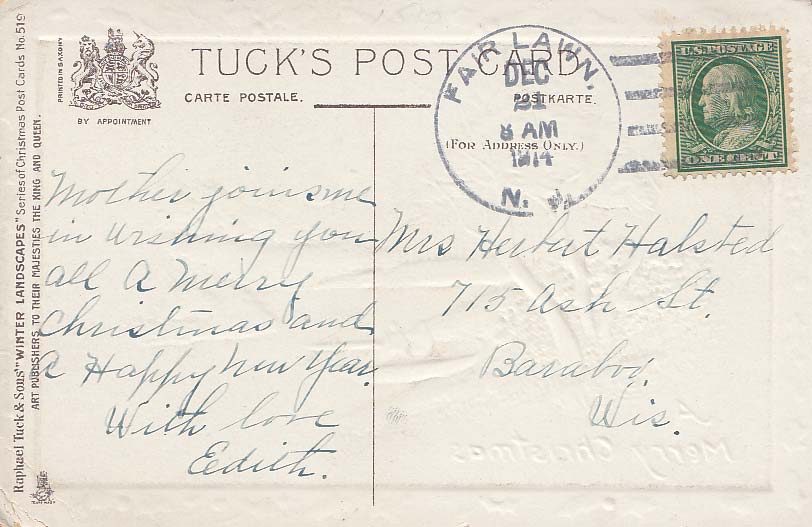 Raphael Tuck & Sons' "WINTER LANDSCAPES" Series of Christmas Post Cards No. 519
ART PUBLISHERS TO THEIR MAJESTIES THE KING AND QUEEN.
PRINTED IN SAXONY
BY APPOINTMENT
TUCK'S POST CARD
CARTE POSTALE.
POSTKARTE.
(FOR ADDRESS ONLY.)
FAIR LAWN.
DEC
21
8 AM
1914
N.
U.S. POSTAGE
ONE CENT
Mother joins me
in wishing you
all a Merry
Christmas and
a Happy New Year.
With love
Edith.
Mrs Herbert Halsted
715 Ash St.
Baraboo
Wis.
A
Merry Christmas